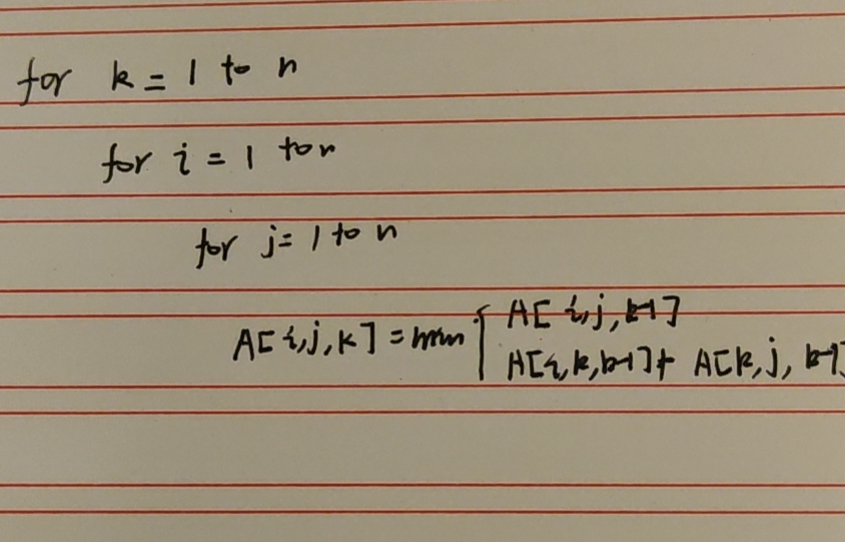 for k = 1 to n
for i = 1 to n
for j = 1 to n
A[i,j,k] = min { A[i,j,k-1]
A[i,k,k-1] + A[k,j,k-1]